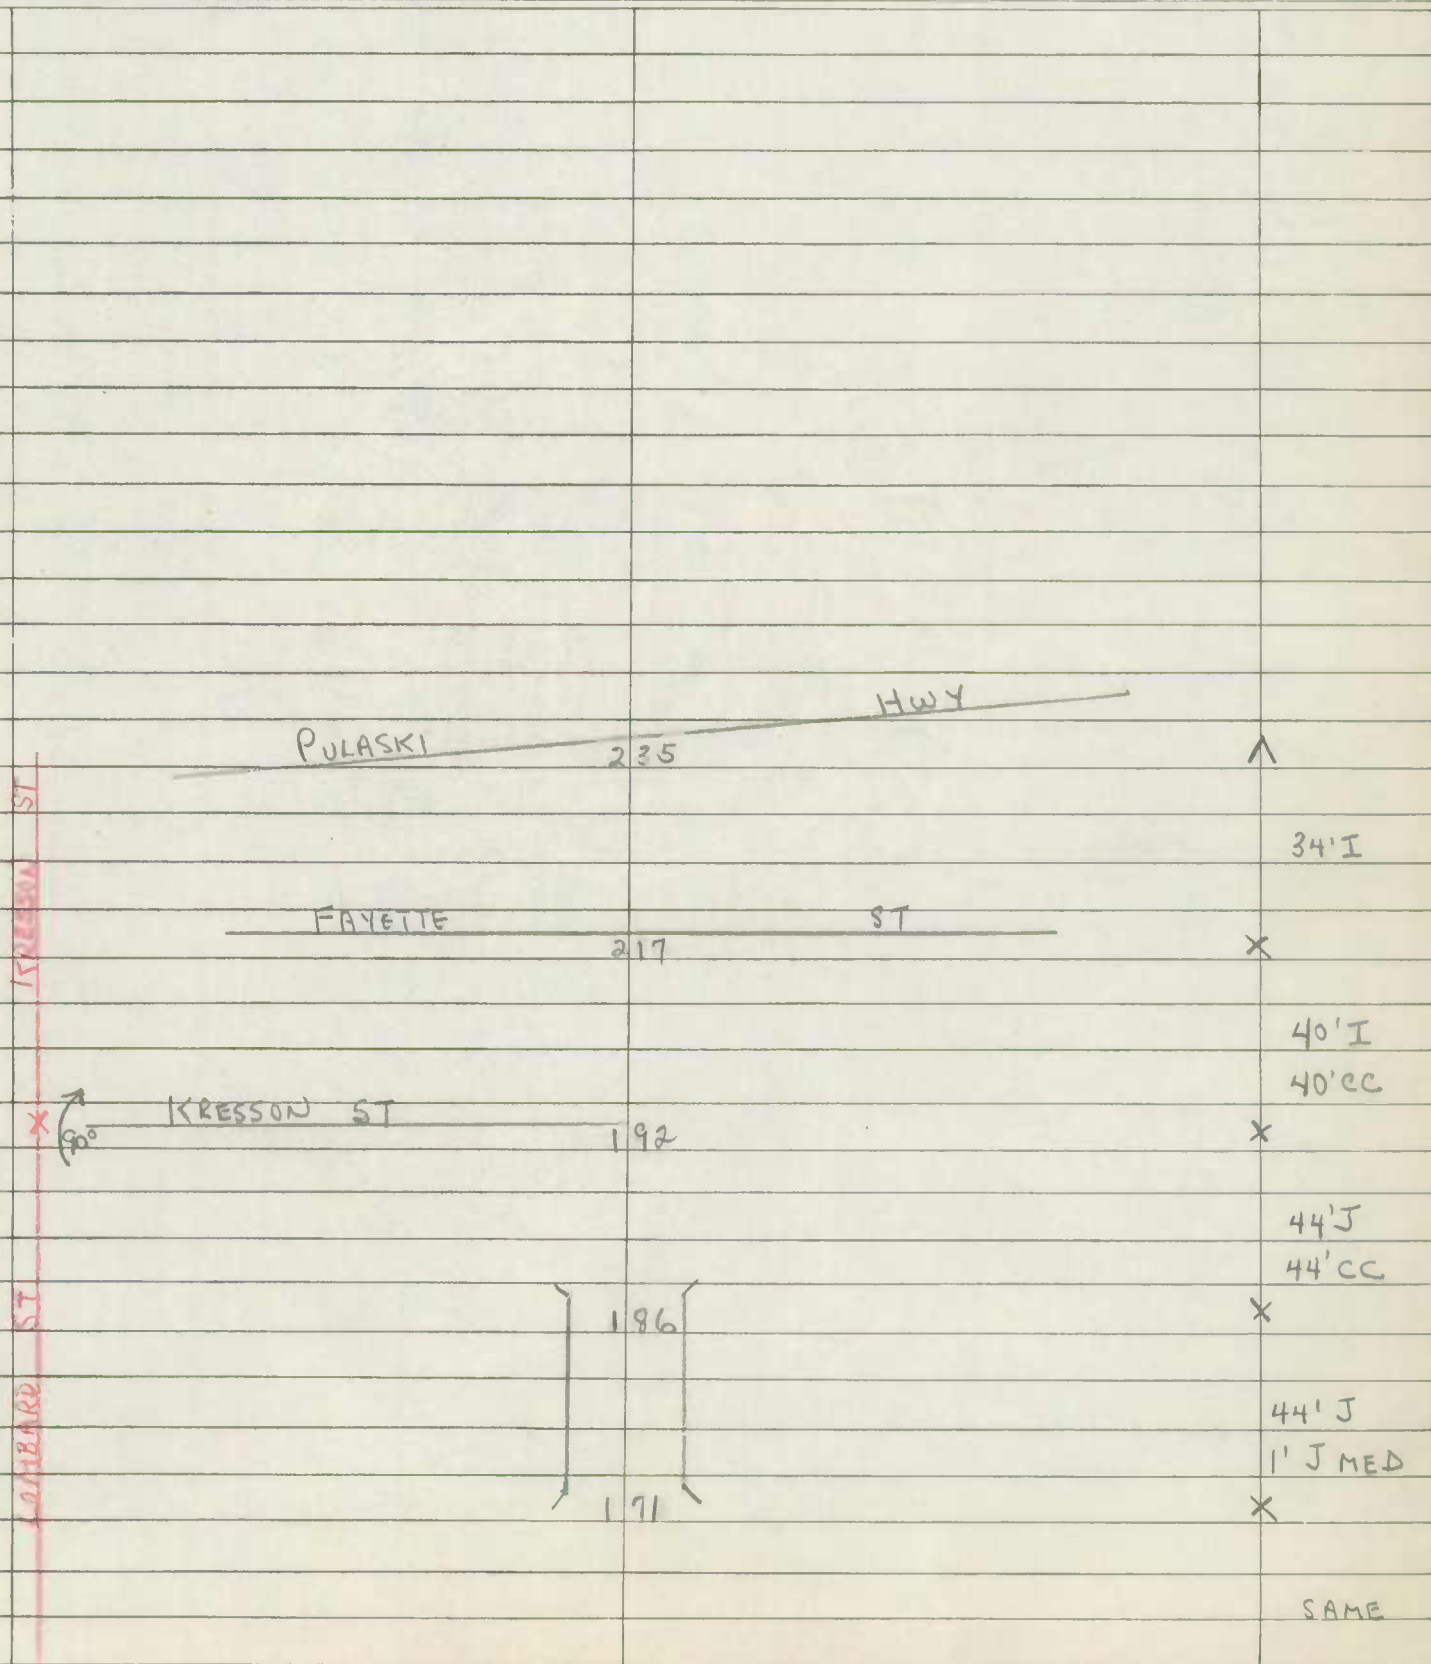 PULASKI HWY
235
KRESSON ST
34'I
FAYETTE ST
217
40'I
40'CC
90° KRESSON ST
192
44'J
44'CC
LOMBARD ST
186
44'J
1' J MED
171
SAME